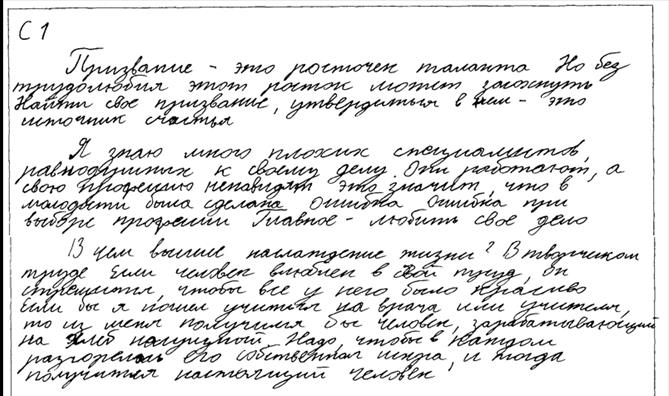 С 1
Призвание - это росточек таланта Но без
трудолюбия этот росток может засохнуть
Найти свое призвание, утвердиться в нем - это
источник счастья
Я знаю много плохих специалистов,
равнодушных к своему делу. Они работают, а
свою профессию ненавидят это значит, что в
молодости была сделана ошибка ошибка при
выборе профессии Главное - любить свое дело
В чем высшее наслаждение жизни? В творческом
труде Если человек влюблен в свой труд, он
стремится, чтобы все у него было красиво
Если бы я пошел учиться на врача или учителя,
то из меня получился бы человек, зарабатывающий
на хлеб насущный. Надо, чтобы в каждом
разгорелась его собственная искра, и тогда
получится настоящий человек